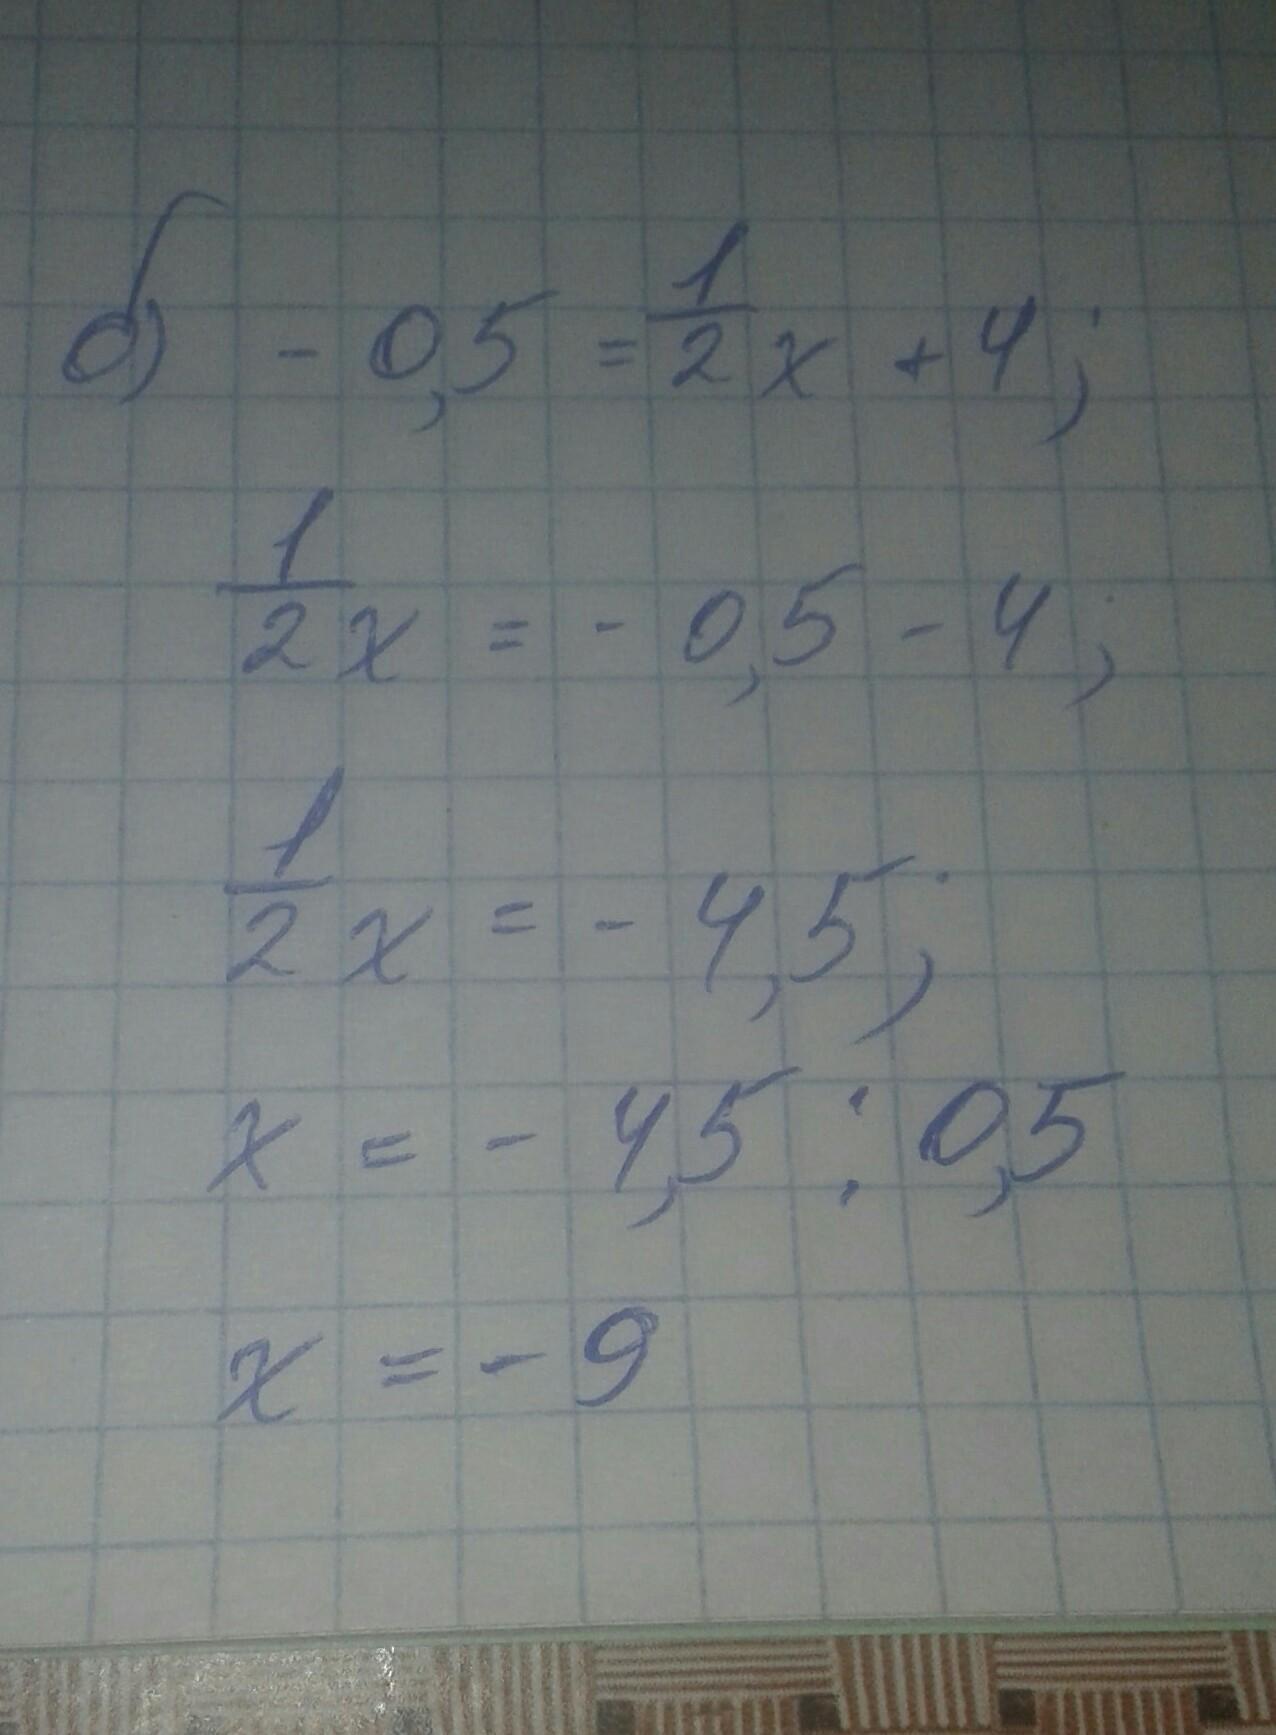 б) - 0,5 = 1/2 x + 4;
1/2 x = - 0,5 - 4;
1/2 x = - 4,5;
x = - 4,5 : 0,5
x = - 9